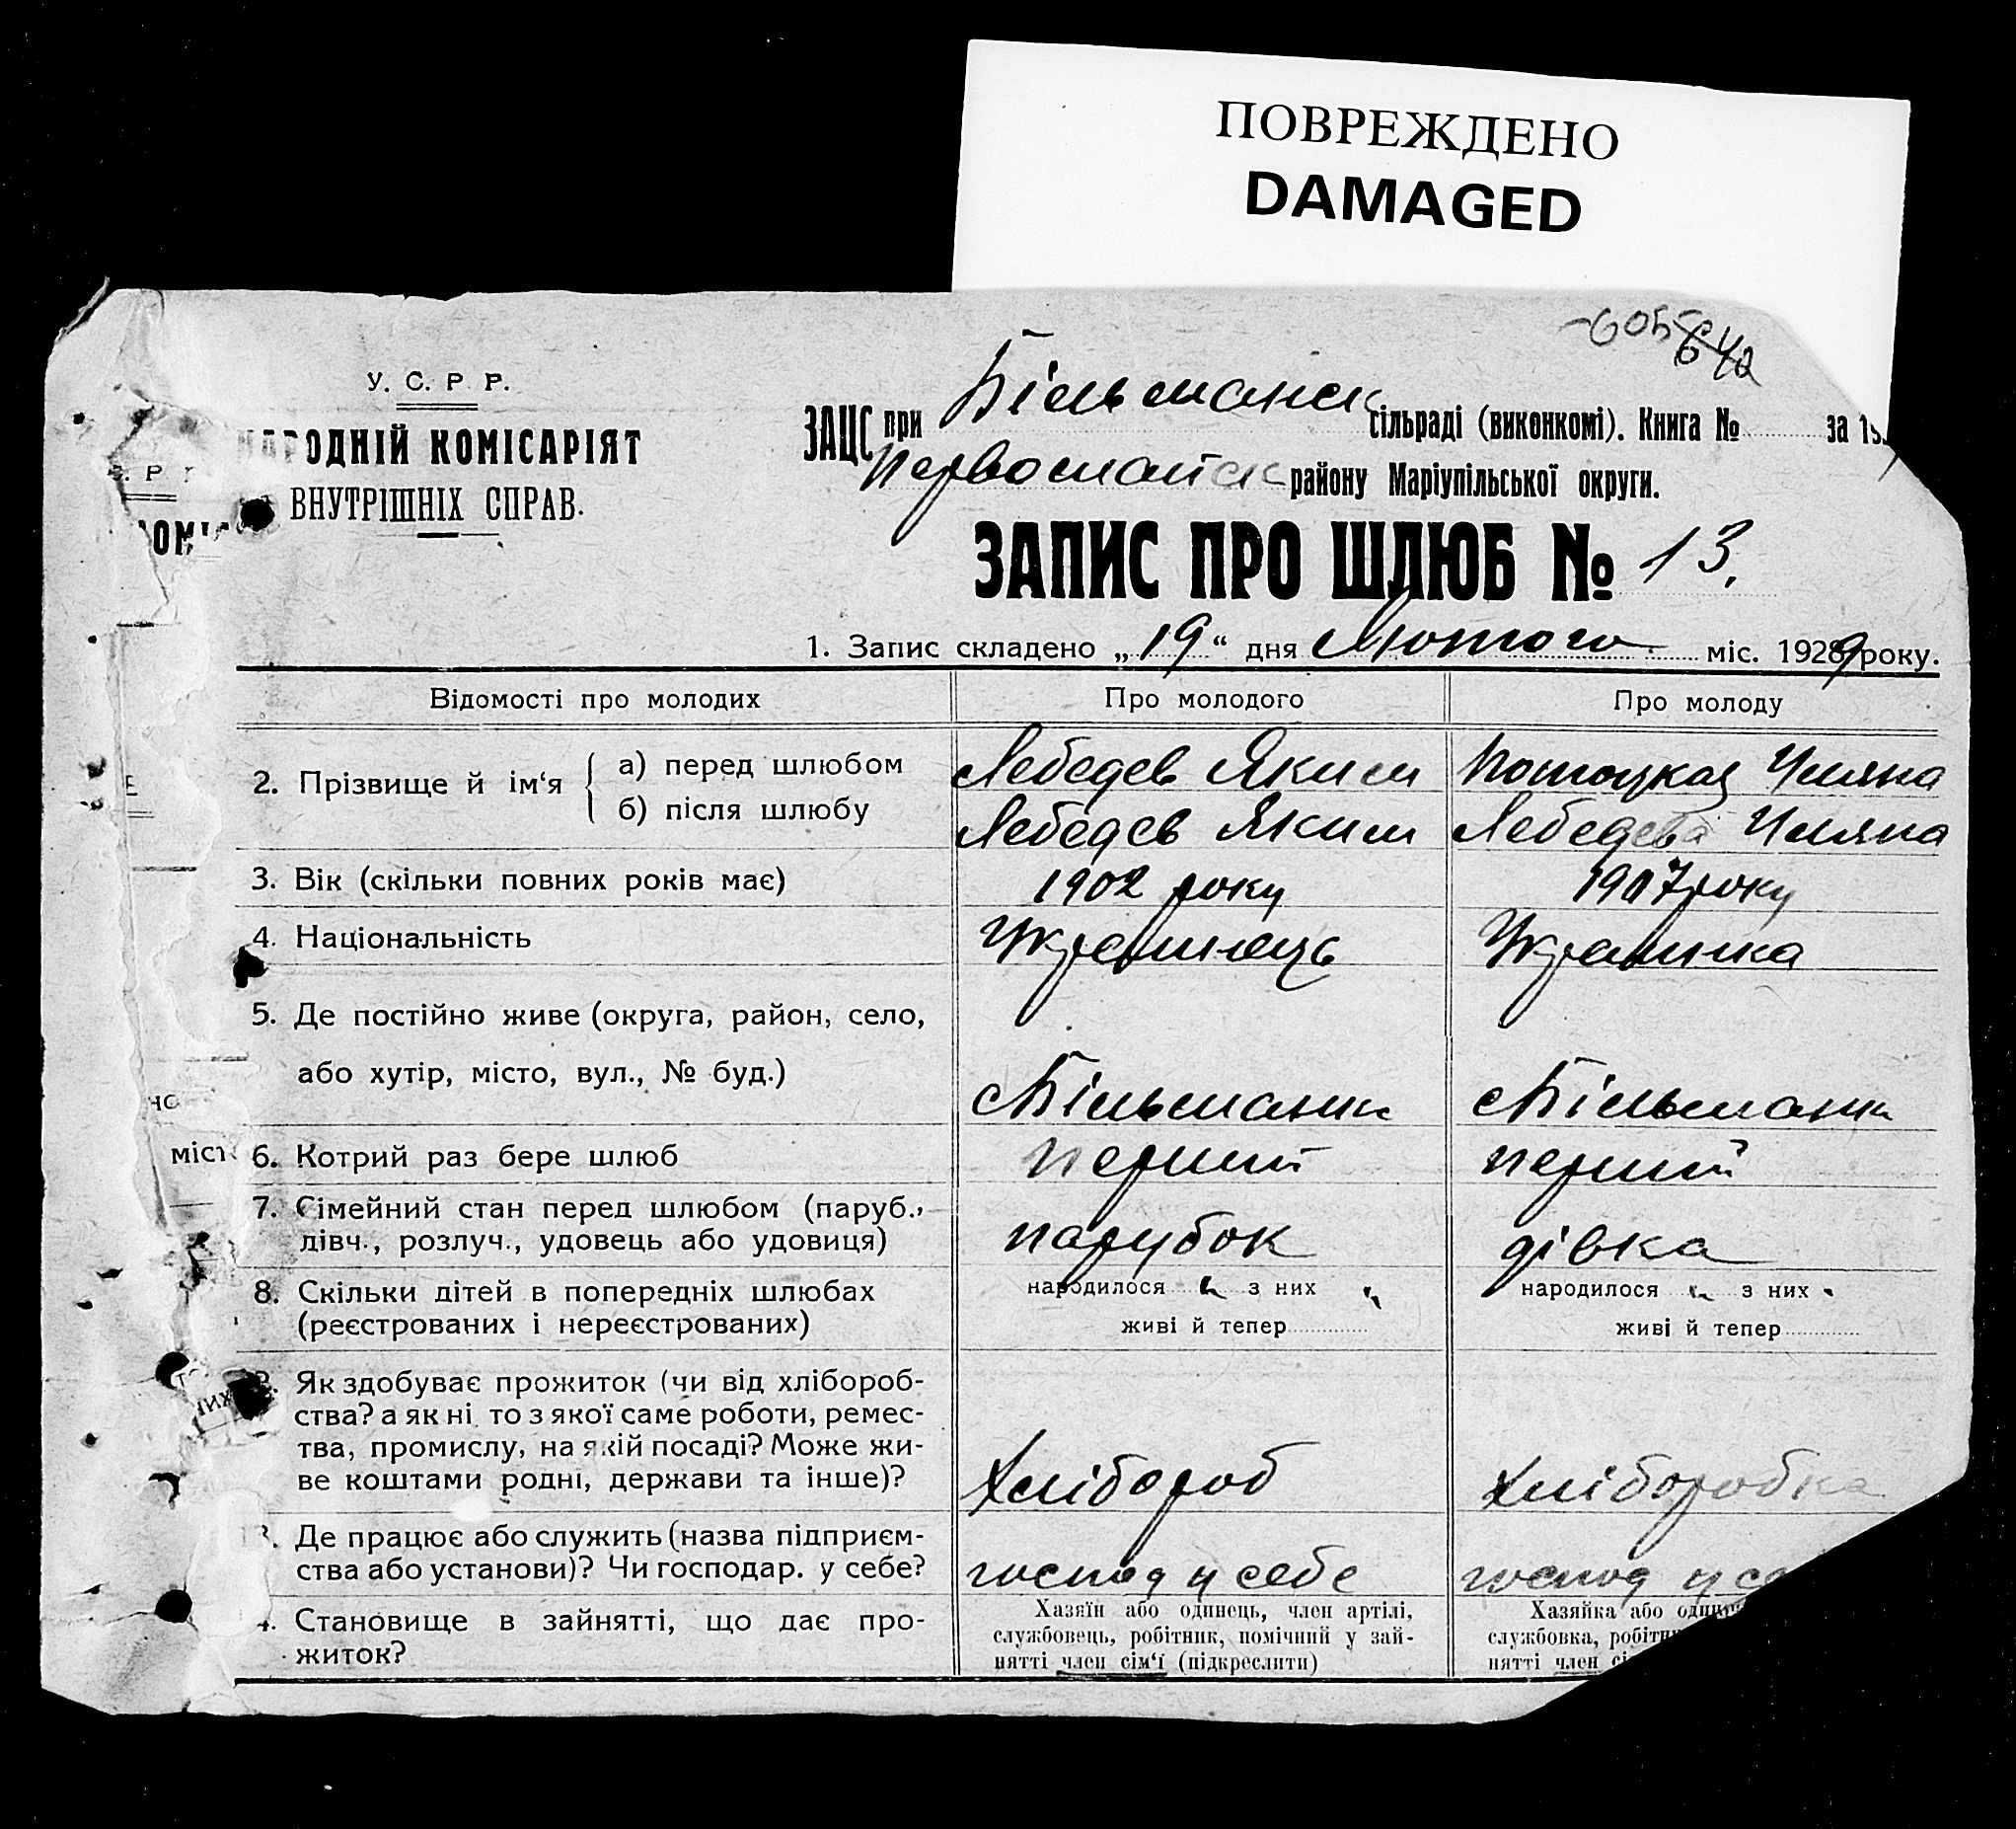 ПОВРЕЖДЕНО
DAMAGED
У. С. Р. Р.
НАРОДНІЙ КОМІСАРІЯТ
ВНУТРІШНІХ СПРАВ.
ЗАЦС при Більманск сільраді (виконкомі). Книга № за 19
Первомайск району Маріупільської округи.
ЗАПИС ПРО ШЛЮБ № 13.
1. Запис складено „19“ дня Лютого міс. 1929 року.
Відомості про молодих Про молодого Про молоду
2. Прізвище й ім‘я
а) перед шлюбом Лебедев Яким Потоцкая Уляна
б) після шлюбу Лебедев Яким Лебедева Уляна
3. Вік (скільки повних років має) 1902 року 1907 року
4. Національність Украинець Украинка
5. Де постійно живе (округа, район, село,
або хутір, місто, вул., № буд.) сБільманк сБільманк
6. Котрий раз бере шлюб перший перший
7. Сімейний стан перед шлюбом (паруб.,
дівч., розлуч., удовець або удовиця) парубок дівка
8. Скільки дітей в попередніх шлюбах народилося з них народилося з них
(реєстрованих і нереєстрованих) живі й тепер живі й тепер
Як здобуває прожиток (чи від хлібороб-
ства? а як ні то з якої саме роботи, ремес-
тва, промислу, на якій посаді? Може жи-
ве коштами родні, держави та інше)? Хлібороб Хліборобка
Де працює або служить (назва підприєм-
ства або установи)? Чи господар. у себе? господ у себе господ у се
Становище в зайнятті, що дає про-
житок?
Хазяїн або одинець, член артілі,
службовець, робітник, помічний у зай-
нятті член сім‘ї (підкреслити)
Хазяйка або один
службовка, робітн
нятті член сі